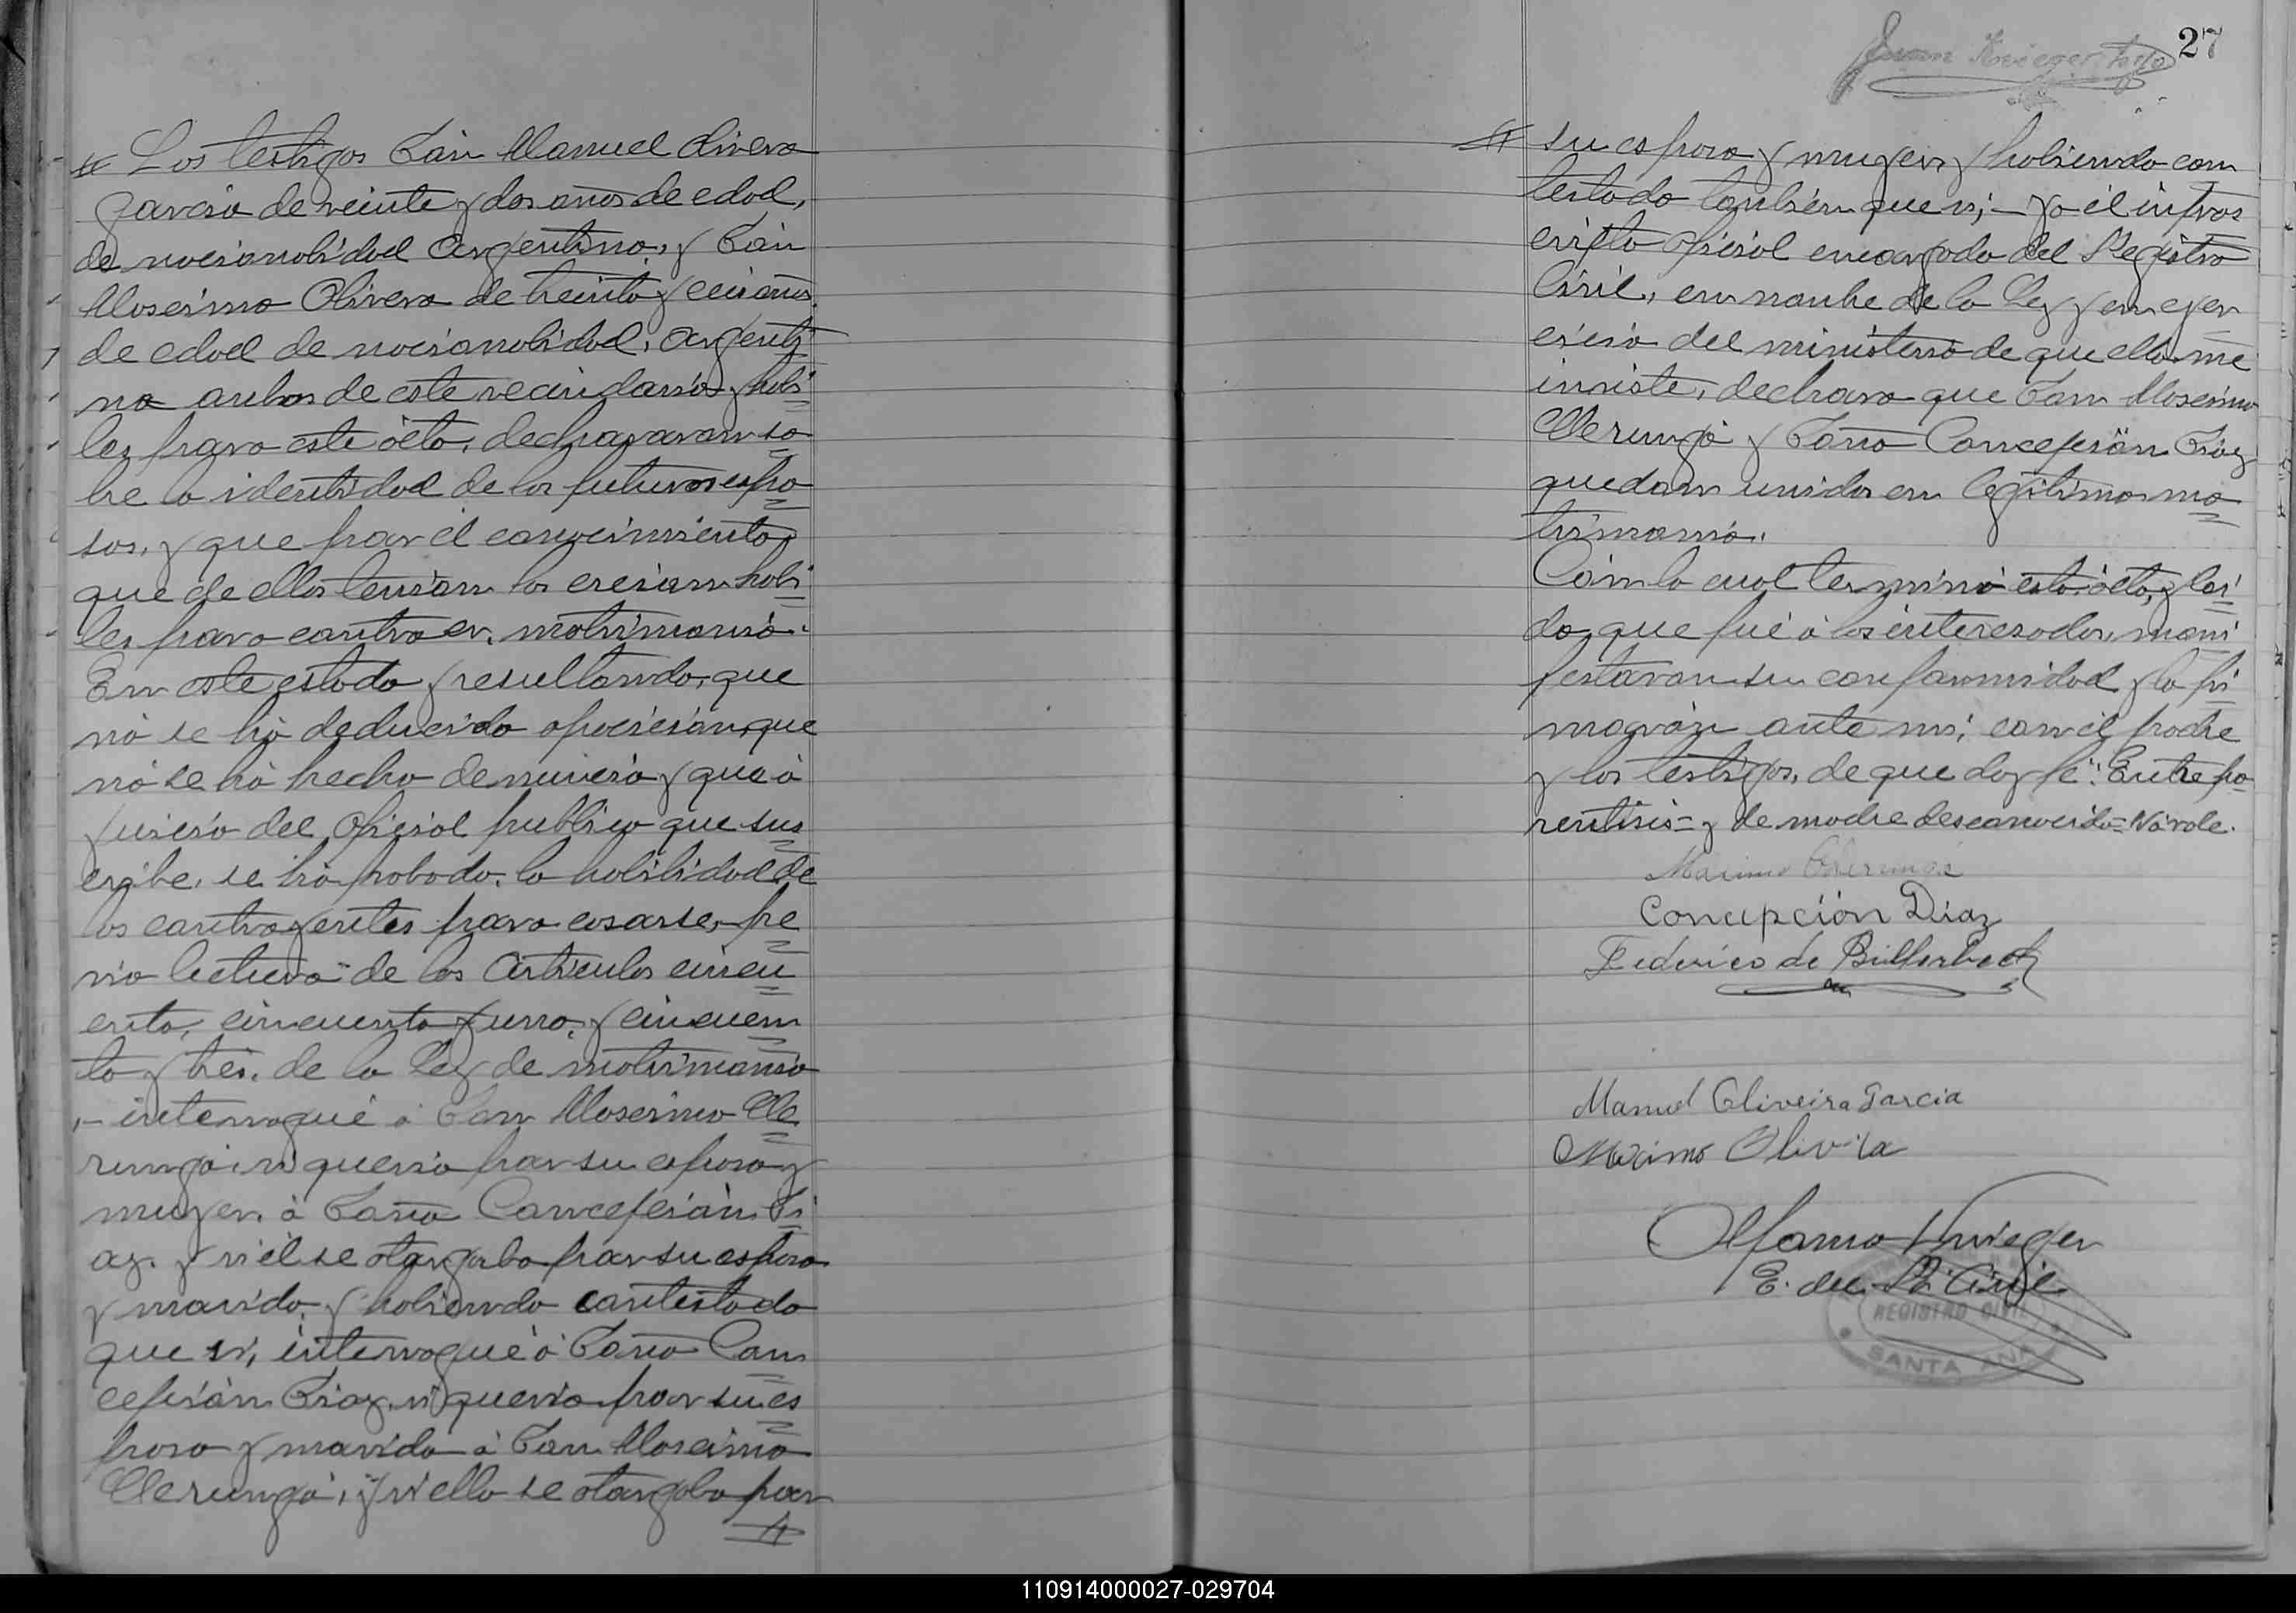 Los testigos Don Manuel Olivera
Garcia de veinte y dos años de edad,
de nacionalidad Argentina, y Don
Macsimo Olivera de treinta y años
de edad de nacionalidad, argenti
na ambos de este vecindario y habi
les para este ácto, declararon so
bre la identidad de los futuros espo
sos, y que por él conocimiento
que de ellos tenian los creian habi
les para contraer, matrimonio.
En este estado y resultando, que
nó se há deducido oposición, que
nó se há hecho denuncia y que á
juicio del Oficial publico que sus
cribe, se há probado, la habilidad de
los contrayentes para casarse, pre
via lectura de los Articulos cincu
enta, cincuenta y uno, y cincuen
ta y trés, de la Ley de matrimonio
,- interrogué á Don Macsimo
si queria por su esposa y
muger, á Doña Concepción Di
az, y si él se otorgaba por su esposo
y marido, y habiendo contestado
que si, interrogué á Doña Con
cepción Diaz, si queria por su es
poso y marido á Don Macsimo
y si ella se otorgaba por
27
Juan Krieger
su esposa y muger, y habiendo con
testado también que si;- yo él infras
cripto Oficial encargado del Registro
Civil, en nombre de la Ley y en ejer
cicio del ministerio de que ella me
inviste, declaro que Don Macsimo
y Doña Concepción Diaz
quedan unidos en legitimo ma
trimonio.
Con lo cual terminó este ácto, y lei
do, que fué á los interesados, mani
festaron su conformidad y lo fir
ante mi; con él padre
y los testigos, de que doy fé. Entre pa
rentisis= y de madre desconocida= Nó vale.
Maximo
Concepción Diaz
Federico de Billerbeck
Manuel Oliveira Garcia
Maximo Olivera
Alfonso Krieger
E. del R. Civil
REGISTRO CIVIL
SANTA ANA
110914000027-029704